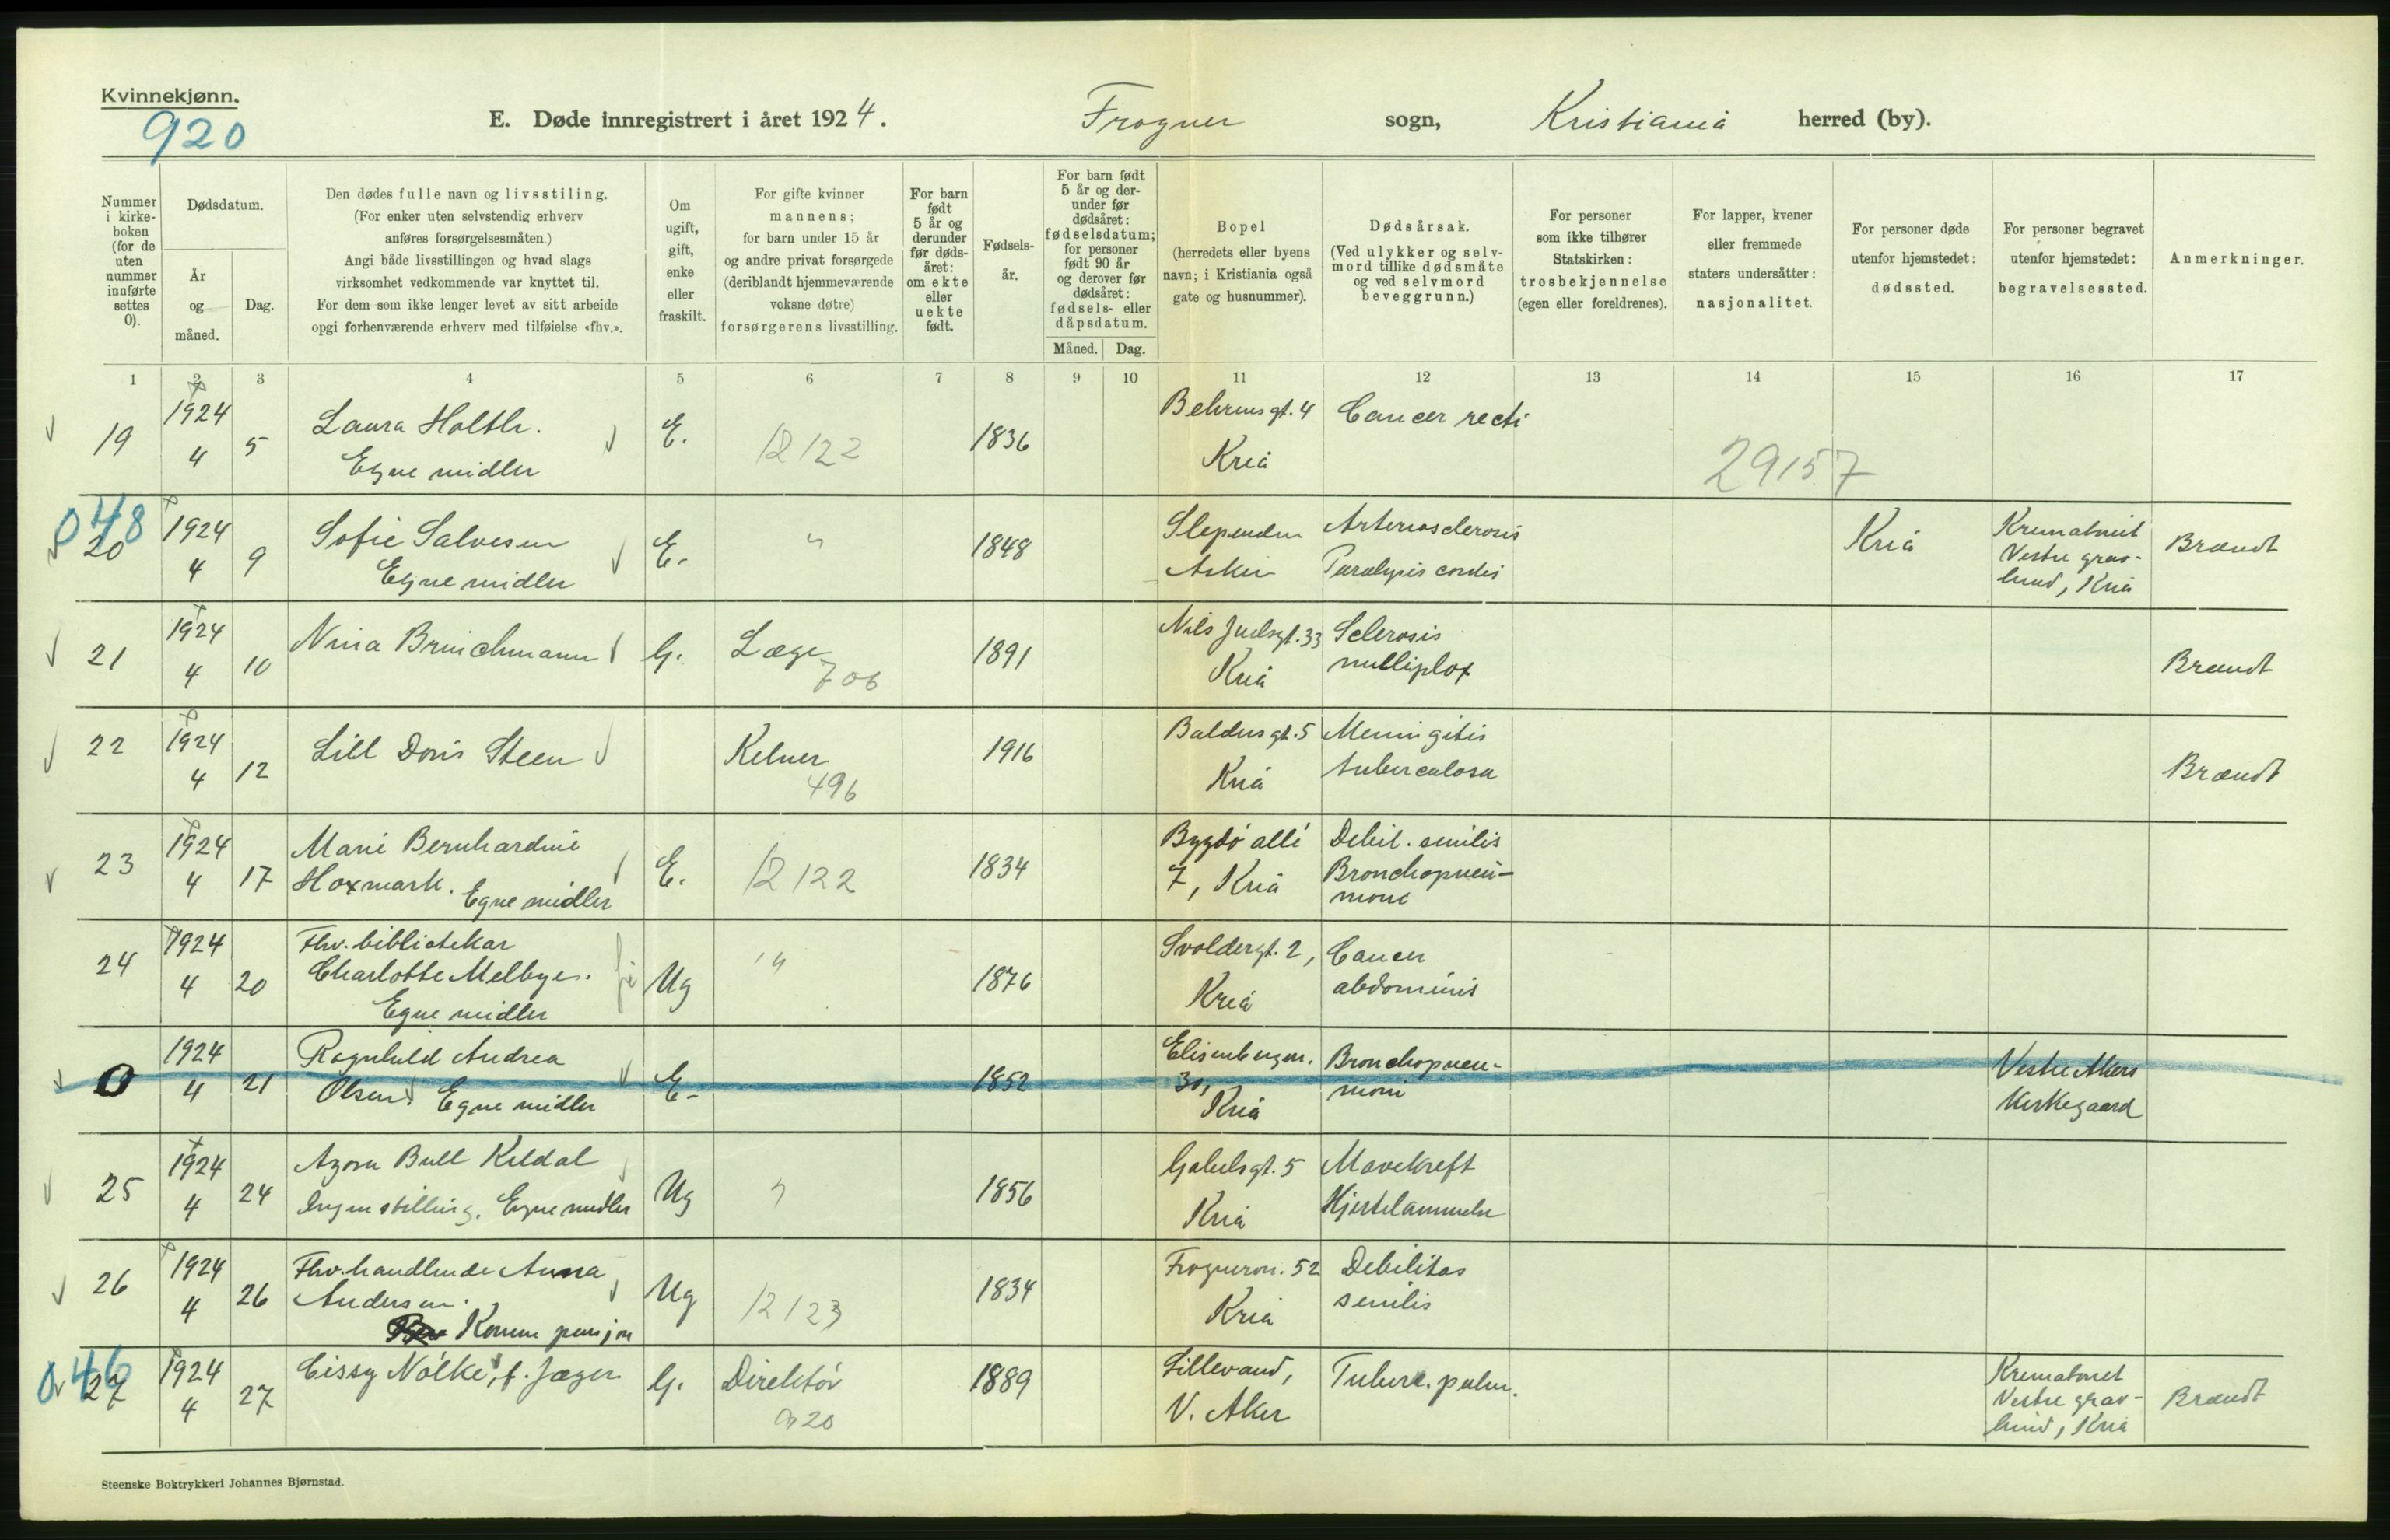 Kvinnekjønn.
920
E. Døde innregistrert i året 1924. Frogner sogn, Kristiania herred (by).
Nummer i kirkeboken (for de uten nummer innførte settes 0).
Dødsdatum.
År og måned.
Dag.
Den dødes fulle navn og livsstiling.
(For enker uten selvstendig erhverv
anføres forsørgelsesmåten.)
Angi både livsstillingen og hvad slags
virksomhet vedkommende var knyttet til.
For dem som ikke lenger levet av sitt arbeide
opgi forhenværende erhverv med tilføielse «fhv.».
Om
ugift,
gift,
enke
eller
fraskilt.
For gifte kvinner
mannens;
for barn under 15 år
og andre privat forsørgede
(deriblandt hjemmeværende
voksne døtre)
forsørgerens livsstilling.
For barn
født
5 år og
derunder
før døds-
året:
om ekte
eller
uekte
født.
Fødsels-
år.
For barn født
5 år og der-
under før
dødsåret:
fødselsdatum;
for personer
født 90 år
og derover før
dødsåret:
fødsels- eller
dåpsdatum.
Måned. Dag.
Bopel
(herredets eller byens
navn; i Kristiania også
gate og husnummer).
Dødsårsak.
(Ved ulykker og selv-
mord tillike dødsmåte
og ved selvmord
beveggrunn.)
For personer
som ikke tilhører
Statskirken:
trosbekjennelse
(egen eller foreldrenes).
For lapper, kvener
eller fremmede
staters undersåtter:
nasjonalitet.
For personer døde
utenfor hjemstedet:
dødssted.
For personer begravet
utenfor hjemstedet:
begravelsessted.
Anmerkninger.
1 2 3 4 5 6 7 8 9 10 11 12 13 14 15 16 17
19 1924 4 5 Laura Holth. Egne midler E. 12122 1836 Behrensgt. 4 Kria Cancer recti 29157
048
20 1924 4 9 Sofie Salvesen Egne midler E. " 1848 Slependen Asker Arteriosclerosis Paralysis cordis Kria Krematoriet Vestre gravlund, Kria Brandt
21 1924 4 10 Nina Brinchmann G. Læge 706 1891 Nils Juelsgt. 33 Kria Sclerosis multiplex Brandt
22 1924 4 12 Lill Doris Steen Kelner 496 1916 Baldersgt. 5 Kria Meningitis tuberculosa Brandt
23 1924 4 17 Marie Bernhardine Hoxmark. Egne midler E. 12122 1834 Bygdø allé 7, Kria Debil. senilis Bronchopneumoni
24 1924 4 20 Fhv. bibliotekar Charlotte Melbye. Egne midler Ug " 1876 Svoldergt. 2, Kria Cancer abdominis
0 1924 4 21 Ragnhild Andrea Olsen. Egne midler E. 1852 Elisenbergvn. 30, Kria Bronchopneumoni Vestre Akers Kirkegaard
25 1924 4 24 Agora Bull Kildal Ingen stilling. Egne midler Ug " 1856 Gabelsgt. 5 Kria Mavekreft Hjertelammelse
26 1924 4 26 Fhv. handlende Anna Andersen. Komm pensjon Ug 12123 1834 Frognervn. 52 Kria Debilitas senilis
046
27 1924 4 27 Cissy Nölke, f. Jæger G. Direktör 920 1889 Lillevand, V. Aker Tuberc. pulm. Krematoriet Vestre gravlund, Kria Brandt
Steenske Boktrykkeri Johannes Bjørnstad.